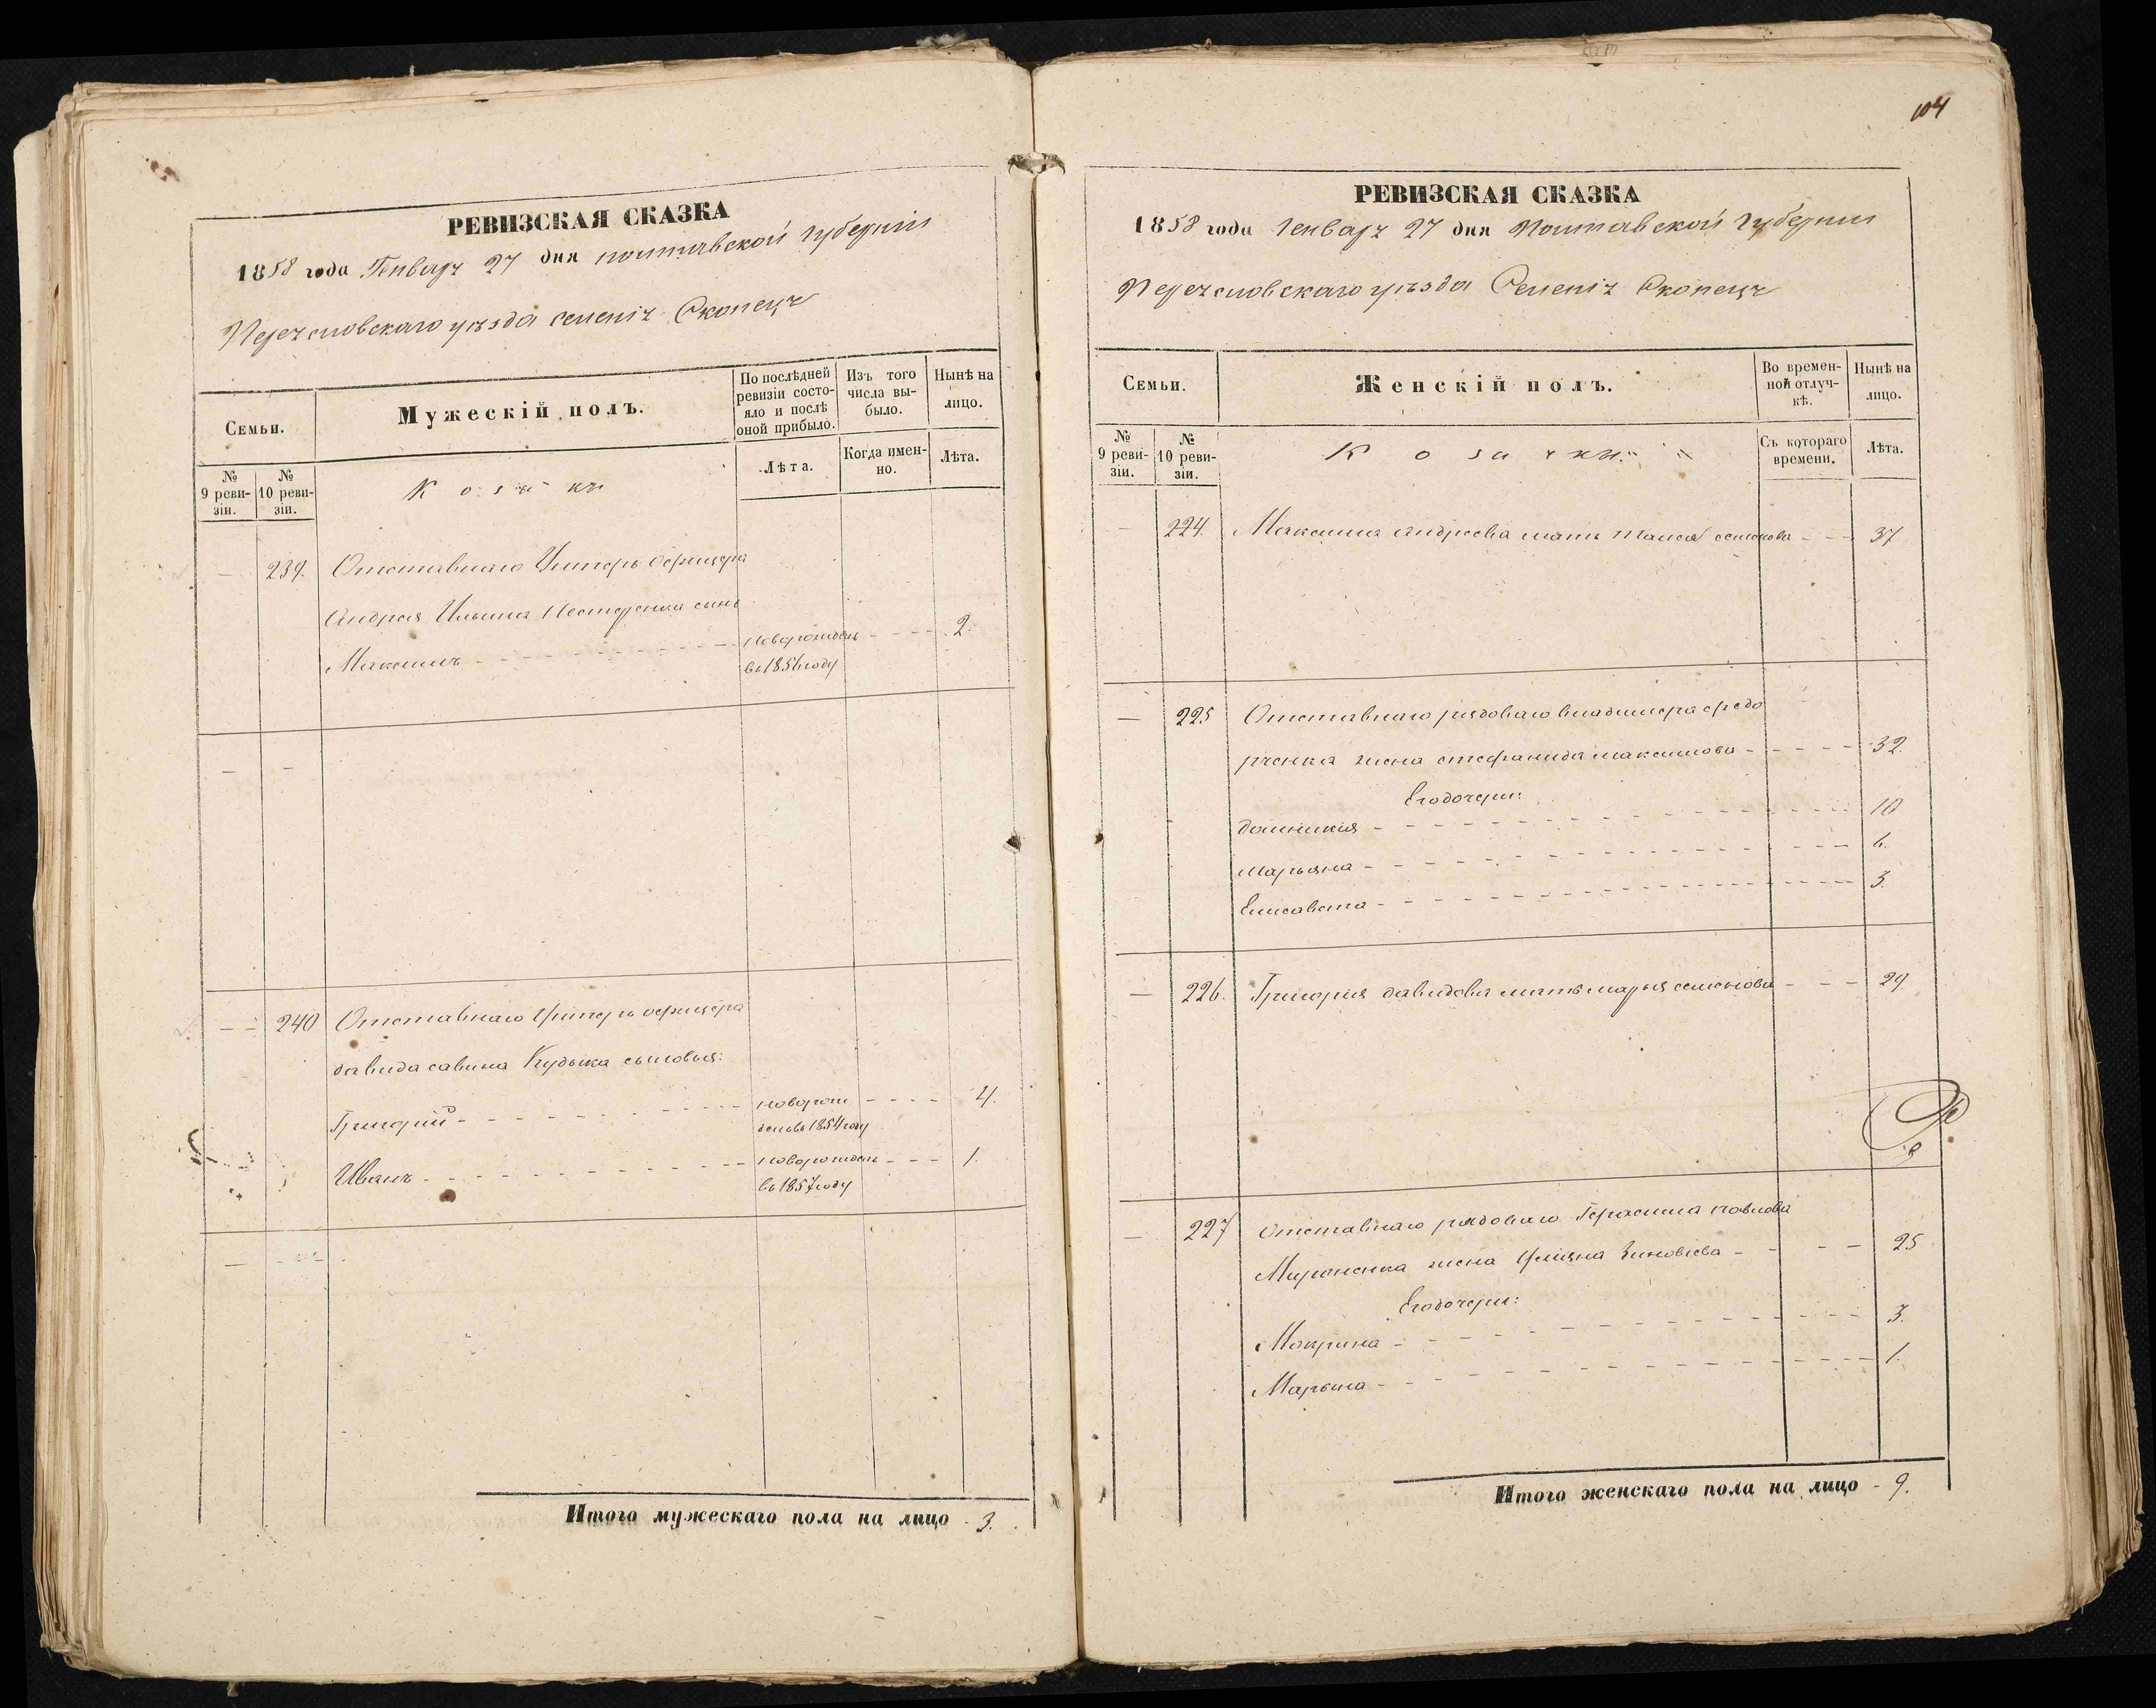 РЕВИЗСКАЯ СКАЗКА
1858 года Генваря 27 дня полтавской губерніи
Переясловскаго уѣзда селенія Скопецъ
Семьи.
Мужескій полъ.
По послѣдней ревизіи состояло и послѣ оной прибыло.
Изъ того числа выбыло.
Нынѣ на лицо.
№ 9 ревизіи.
№ 10 ревизіи.
Козаки
Лѣта.
Когда именно.
Лѣта.
— 239. Отставнаго Унтеръ Офицера
Андрея Ильина Нестеренка сынъ
Максимъ новорожденъ 2.
въ 1856 году
— —
— 240 Отставнаго Унтеръ офицера
давида савина Кудыка сыновья:
Григорій новорож 4.
денъ въ 1854 году
Иванъ новорожденъ 1.
въ 1857 году
Итого мужескаго пола на лицо 3.
104
РЕВИЗСКАЯ СКАЗКА
1858 года Генваря 27 дня Полтавской Губерніи
Переясловскаго уѣзда Селенія Скопецъ
Семьи.
Женскій полъ.
Во временной отлучкѣ.
Нынѣ на лицо.
№ 9 ревизіи.
№ 10 ревизіи.
Козачки
Съ котораго времени.
Лѣта.
— 224. Максима андреева мать таисія семенова 37
— 225 Отставнаго рядоваго владимера
жена стефанида максимова 32.
Его дочери:
домникия 10
марьяна 6.
Елисавета 3.
— 226. Григория давидова мать марья семенова 29
— 227 Отставнаго рядоваго Герасима павлова
Мироненка жена Улияна Зиновіева 25
Его дочери:
Макрина 3.
Марьяна 1.
Итого женскаго пола на лицо 9.